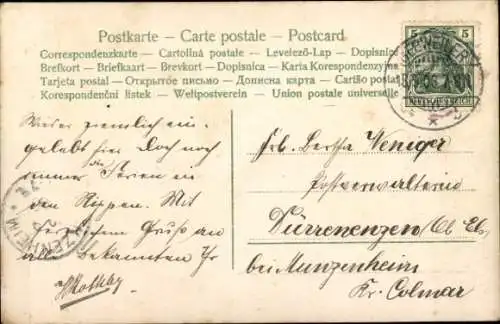 Postkarte — Carte postale — Postcard
Correspondenzkarte — Cartolina postale — Levelező-Lap — Dopisnice
Brefkort — Briefkaart — Brevkort — Dopisnica — Karta Korespondenzyjna
Tarjeta postal — Открытое письмо — Дописна карта — Cartão postal
Korespondenční listek — Weltpostverein — Union postale universelle
5 5
DEUTSCHES REICH
Wieder ziemlich ein-
gelebt hier Doch noch
immer die Ferien in
den Rippen. Mit
herzlichem Gruß an
alle Bekannten Ihr
Frl. Bertha Weniger
Postverwalterin
Dürrenenzen (Ob. Els.)
bei Munzenheim
Kr. Colmar